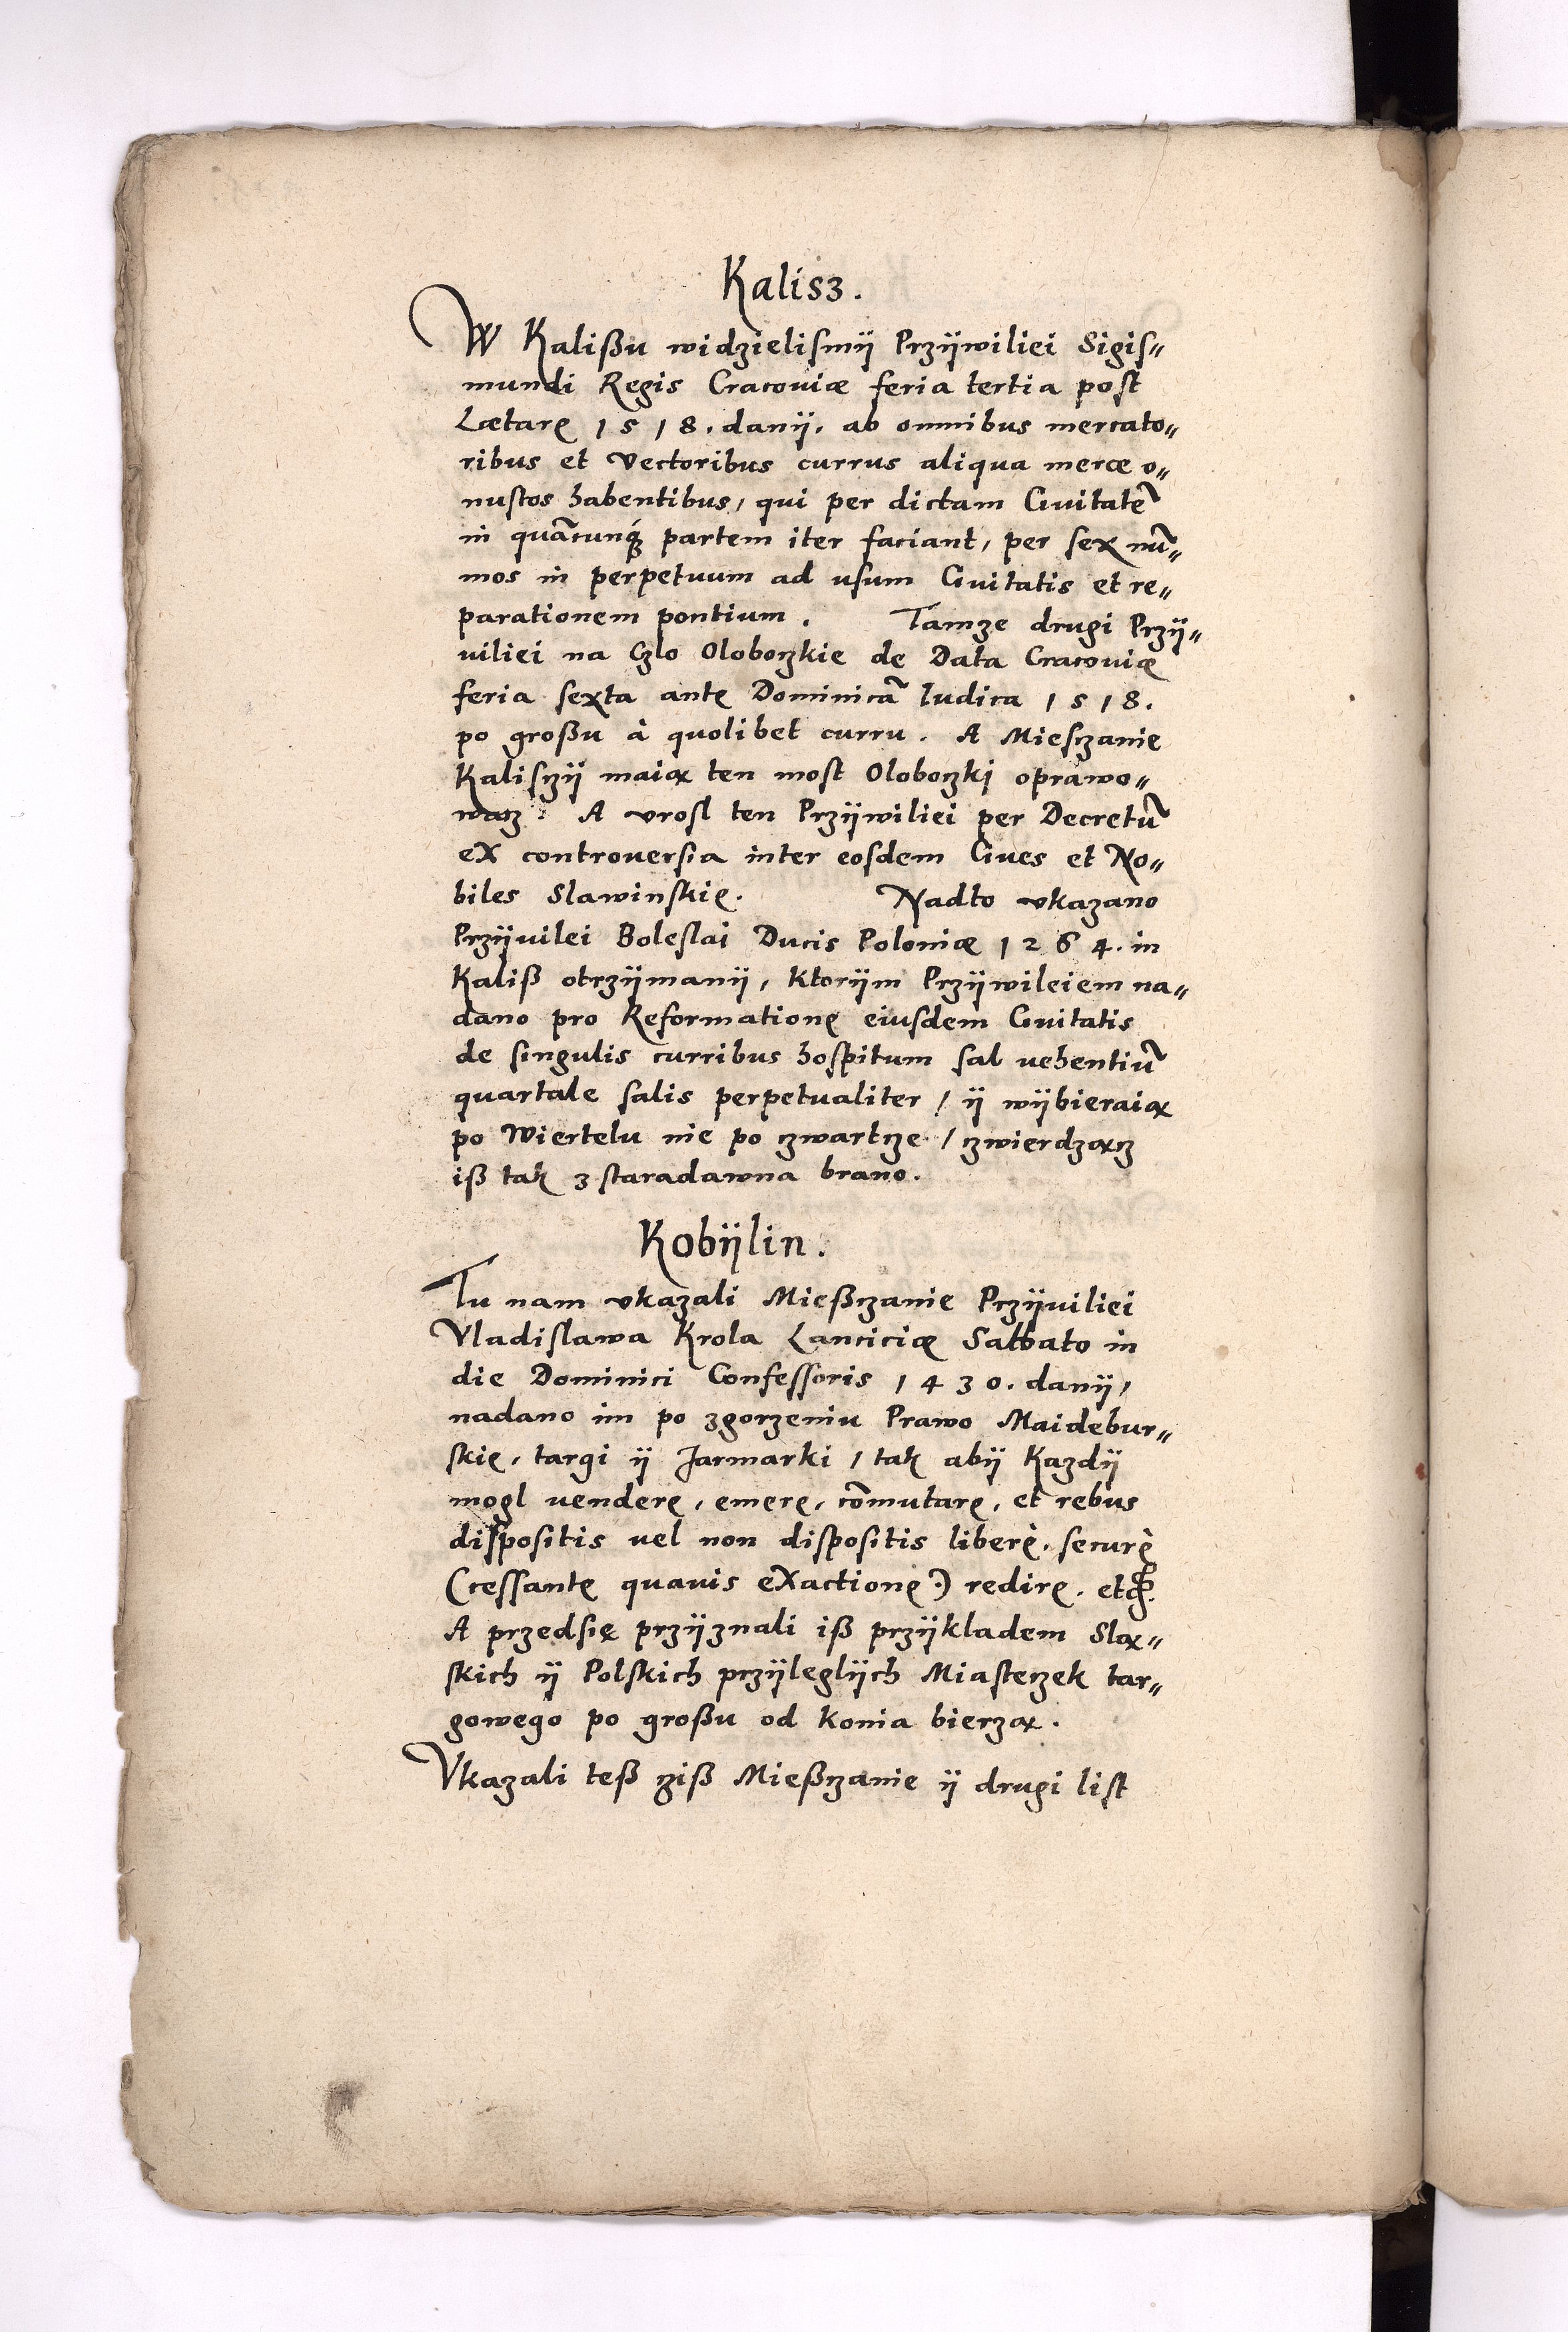 Kalisz.
W Kalißu widzielismÿ Przÿwiliei Sigis„
mundi Regis Cracouiæ feria tertia post
Lætare 1518. danÿ. ab omnibus mercato„
ribus et vectoribus currus aliqua merce o„
nustos habentibus, qui per dictam Ciuitatē
in quācunq́ꝫ partem iter faciant, per sex nū„
mos in perpetuum ad usum Ciuitatis et re„
parationem pontium. Tamze drugi Przÿ„
uiliei na Czlo Oloboczkie de Data Cracouiæ
feria sexta ante Dominicā Iudica 1518.
po großu à quolibet curru. A Miesczanie
Kalisczÿ maią ten most Oloboczki oprawo„
wacz. A vrosl ten Przÿwiliei per Decretū
ex controuersia inter eosdem Ciues et No„
biles Slawinskie. Nadto vkazano
Przÿuilei Boleslai Ducis Poloniæ 1264. in
Kaliß otrzÿmanÿ, ktorÿm Przÿwileiem na„
dano pro Reformatione eiusdem Ciuitatis
de singulis curribus hospitum sal uehentiū
quartale salis perpetualiter, ÿ wÿbieraią
po Wiertelu nie po czwartcze, czwierdzącz
iß tak z staradawna brano.
Kobÿlin.
Tu nam vkazali Mießczanie Przÿuiliei
Vladislawa Krola Lanciciæ Sabbato in
die Dominici Confessoris 1430. danÿ,
nadano im po zgorzeniu Prawo Maidebur„
skie, targi ÿ Jarmarki, tak abÿ kazdÿ
mogl uendere, emere, cōmutare, et rebus
dispositis uel non dispositis liberè, securè
(cessante quauis exactione) redire. etc.
A przedsię przÿznali iß przÿkladem Slą„
skich ÿ Polskich przÿleglÿch Miasteczek tar„
gowego po großu od konia bierzą.
Vkazali teß ciß Mießczanie ÿ drugi list